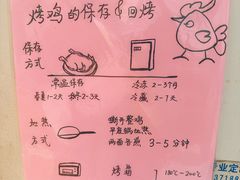 烤鸡的保存&回烤
保存
方式
常温保存
春夏1-2天 秋冬2-3天
冷冻 2-3个月
冷藏 2-7天
加热
方式
撕开整鸡
平底锅加热
两面各煎 3-5分钟
烤箱
180℃-200℃
业定
37188